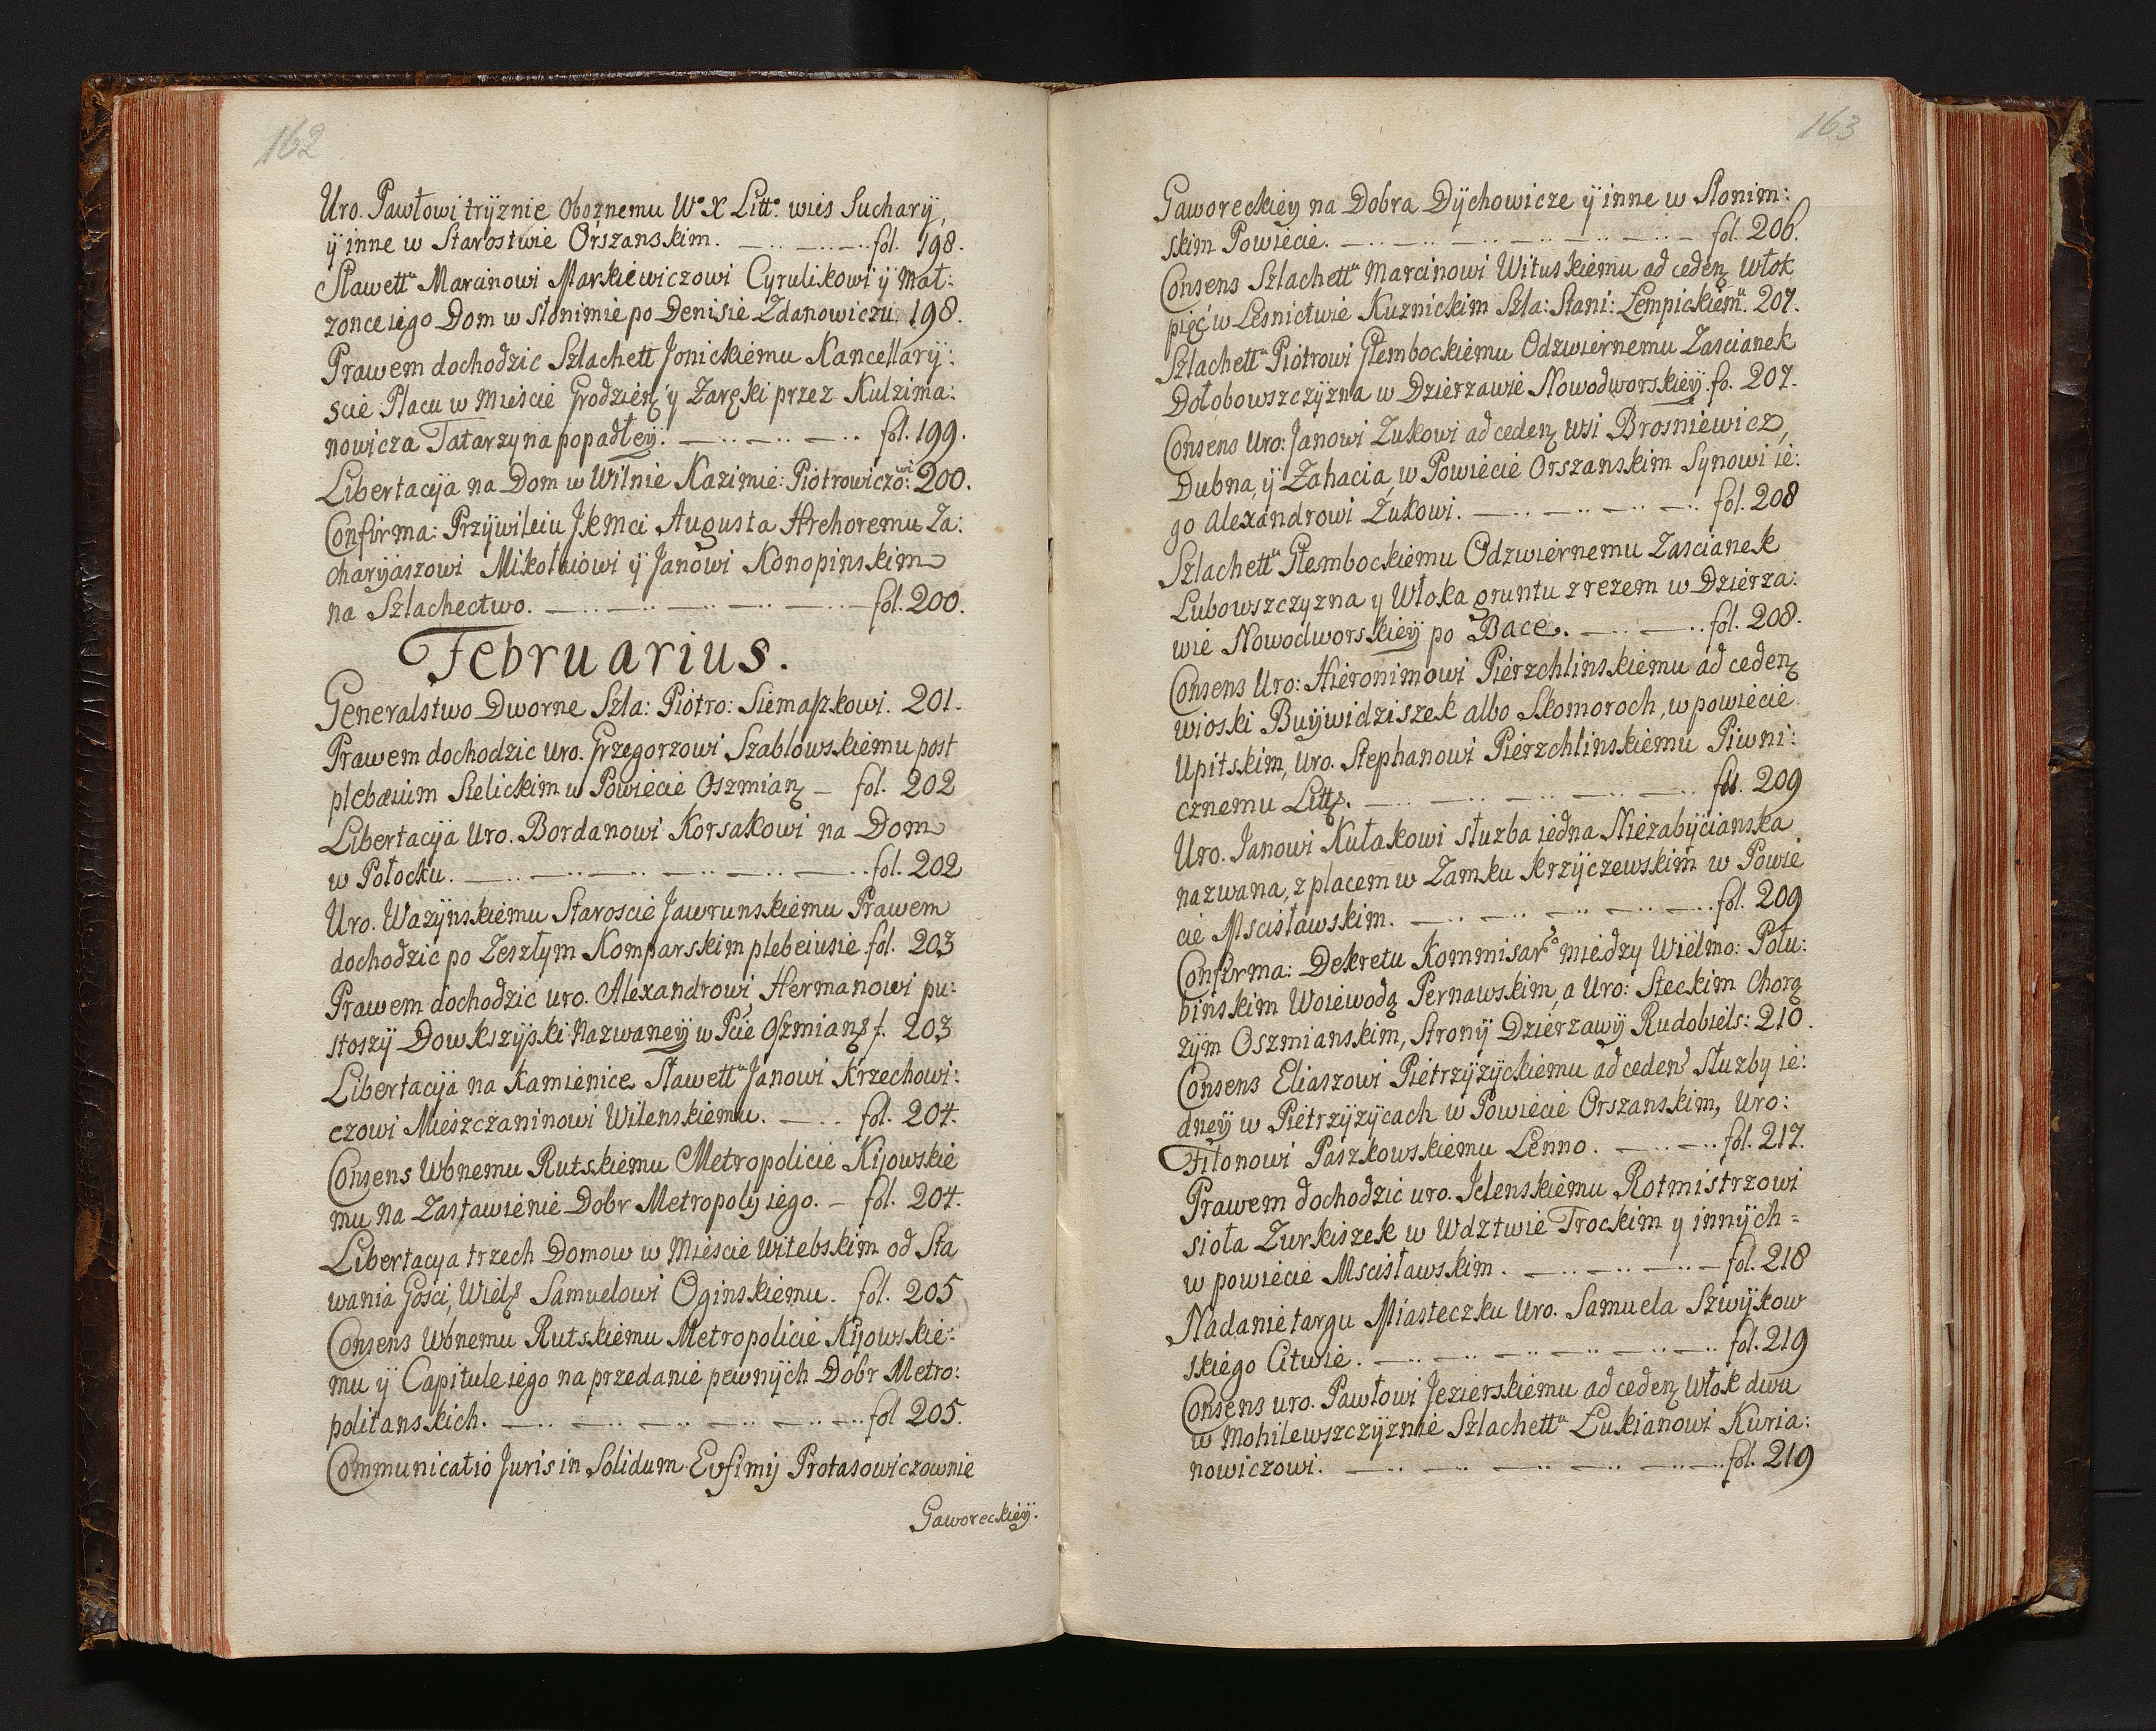 162
Uro. Pawłowi tryznie Oboznemu Wº X Littº. wies Suchary,
ÿ inne w Starostwie Orszanskim. fol. 198.
Sławettu Marcinowi Markiewiczowi Cyrulikowi ÿ Mał:
zonce iego Dom w słonimie po Denisie Zdanowiczu. 198.
Prawem dochodzic Szlachett Jonickiemu Kancellarÿ:
scie Placu w Mieście Grodzien y Zaręki przez Kulzima:
nowicza Tatarzyna popadłeÿ. fol. 199.
Libertacÿa na Dom w Wilnie Kazimie: Piotrowiczo:wi 200.
Confirma: Przÿwileiu JKmci Augusta Htrehoremu Za:
charÿaszowi Mikołaiowi ÿ Janowi Konopinskim
na Szlachectwo. fol. 200.
Februarius.
Generalstwo Dworne Szla: Piotro: Siemaszkowi. 201.
Prawem dochodzic uro. Grzegorzowi Szablowskiemu post
plebæium Sielickim w Powiecie Oszmian fol. 202
Libertacÿa Uro. Bordanowi Korsakowi na Dom
w Połocku. fol. 202
Uro. Wazÿnskiemu Staroscie Jawrunskiemu Prawem
dochodzic po Zeszłym Komparskim plebeiusie fol. 203
Prawem dochodzic uro. Alexandrowi Hermanowi pu:
stoszÿ Dowkszÿszki Nazwaneÿ w Pcie Oszmian f. 203
Libertacÿa na Kamienice Sławettu Janowi Krzechowi:
czowi Mieszczaninowi Wilenskiemu. fol. 204.
Consens Wbnemu Rutskiemu Metropolicie Kijowskie
mu na Zastawienie Dobr Metropolÿ iego. fol. 204.
Libertacya trzech Domow w Miescie Witebskim od Sta
wania Gosci, Wiel Samuelowi Oginskiemu. fol. 205
Consens Wbnemu Rutskiemu Metropolicie Kijowskie:
mu ÿ Capitule iego na przedanie pewnÿch Dobr Metro:
politanskich. fol 205.
Communicatio Juris in Solidum Evfimij Protasowiczownie
Gaworeckieÿ.
163
Gaworeckieÿ na Dobra Dÿchowicze ÿ inne w Słonim:
skim Powiecie. fol. 206.
Consens Szlachettu Marcinowi Wituskiemu ad ceden Włok
pięć w Lesnictwie Kuznickim Szla: Stani: Łempickiemu. 207.
Szlachettu Piotrowi Głembockiemu Odzwiernemu Zascianek
Dołobowszczÿzna w Dzierzawie Nowodworskieÿ. fo. 207.
Consens Uro: Janowi Zukowi ad ceden wsi Brosniewicz,
Dubna, ÿ Zahacia, w Powiecie Orszanskim Synowi ie:
go Alexandrowi Żukowi. fol. 208
Szlachettu Głembockiemu Odzwiernemu Zascianek
Lubowszczyzna y Włoka gruntu z rezem w Dzierza:
wie Nowodworskieÿ po Bace. fol. 208.
Consens Uro: Hieronimowi Pierzchlinskiemu ad ceden
wioski Buÿwidziszek albo Skomoroch, w powiecie
Upitskim, Uro. Stephanowi Pierzchlinskiemu Piwni:
cznemu Litt. fol. 209
Uro. Janowi Kułakowi słuzba iedna Niezabÿcianska
nazwana, z placem w Zamku Krzÿczewskim w Powie
cie Mscisławskim. fol. 209
Confirma: Dekretu Kommisar miedzy Wielmo: Połu:
binskim Woiewodą Pernawskim, a Uro: Steckim Chorą
zÿm Oszmianskim, Stronÿ Dzierzawÿ Rudobiels: 210.
Consens Eliaszowi Pietrzÿzÿckiemu ad ceden Słuzby ie:
dneÿ w Pietrzÿzÿcach w Powiecie Orszanskim, Uro:
Fiłonowi Paszkowskiemu Lenno. fol. 217.
Prawem dochodzic uro. Jelenskiemu Rotmistrzowi
sioła Zurkiszek w Wdztwie Trockim y innÿch =
w powiecie Mscisławskim. fol. 218
Nadanie targu Miasteczku Uro. Samuela Szwÿkow
skiego Citwie. fol. 219
Consens uro. Pawłowi Jezierskiemu ad ceden Włok dwu
w Mohilewszczÿznie Szlachettu Łukianowi Kuria:
nowiczowi. fol. 219